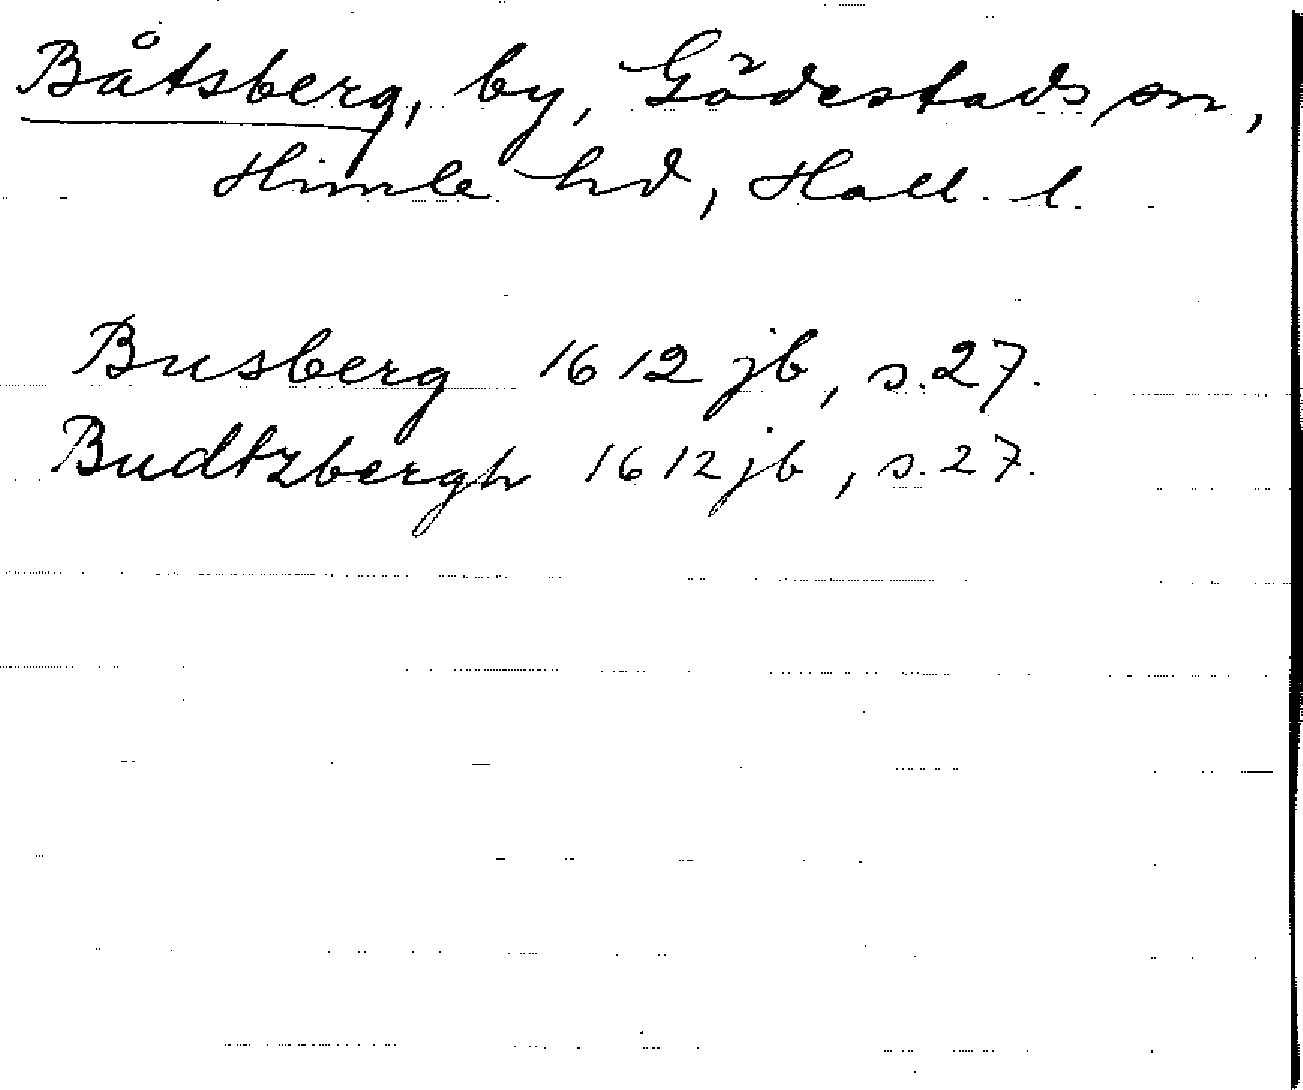 Båtsberg, by, Gödestads sn,
Himle hd, Hall. l.
Busberg 1612 jb, s. 27.
Budtzbergh 1612 jb, s. 27.